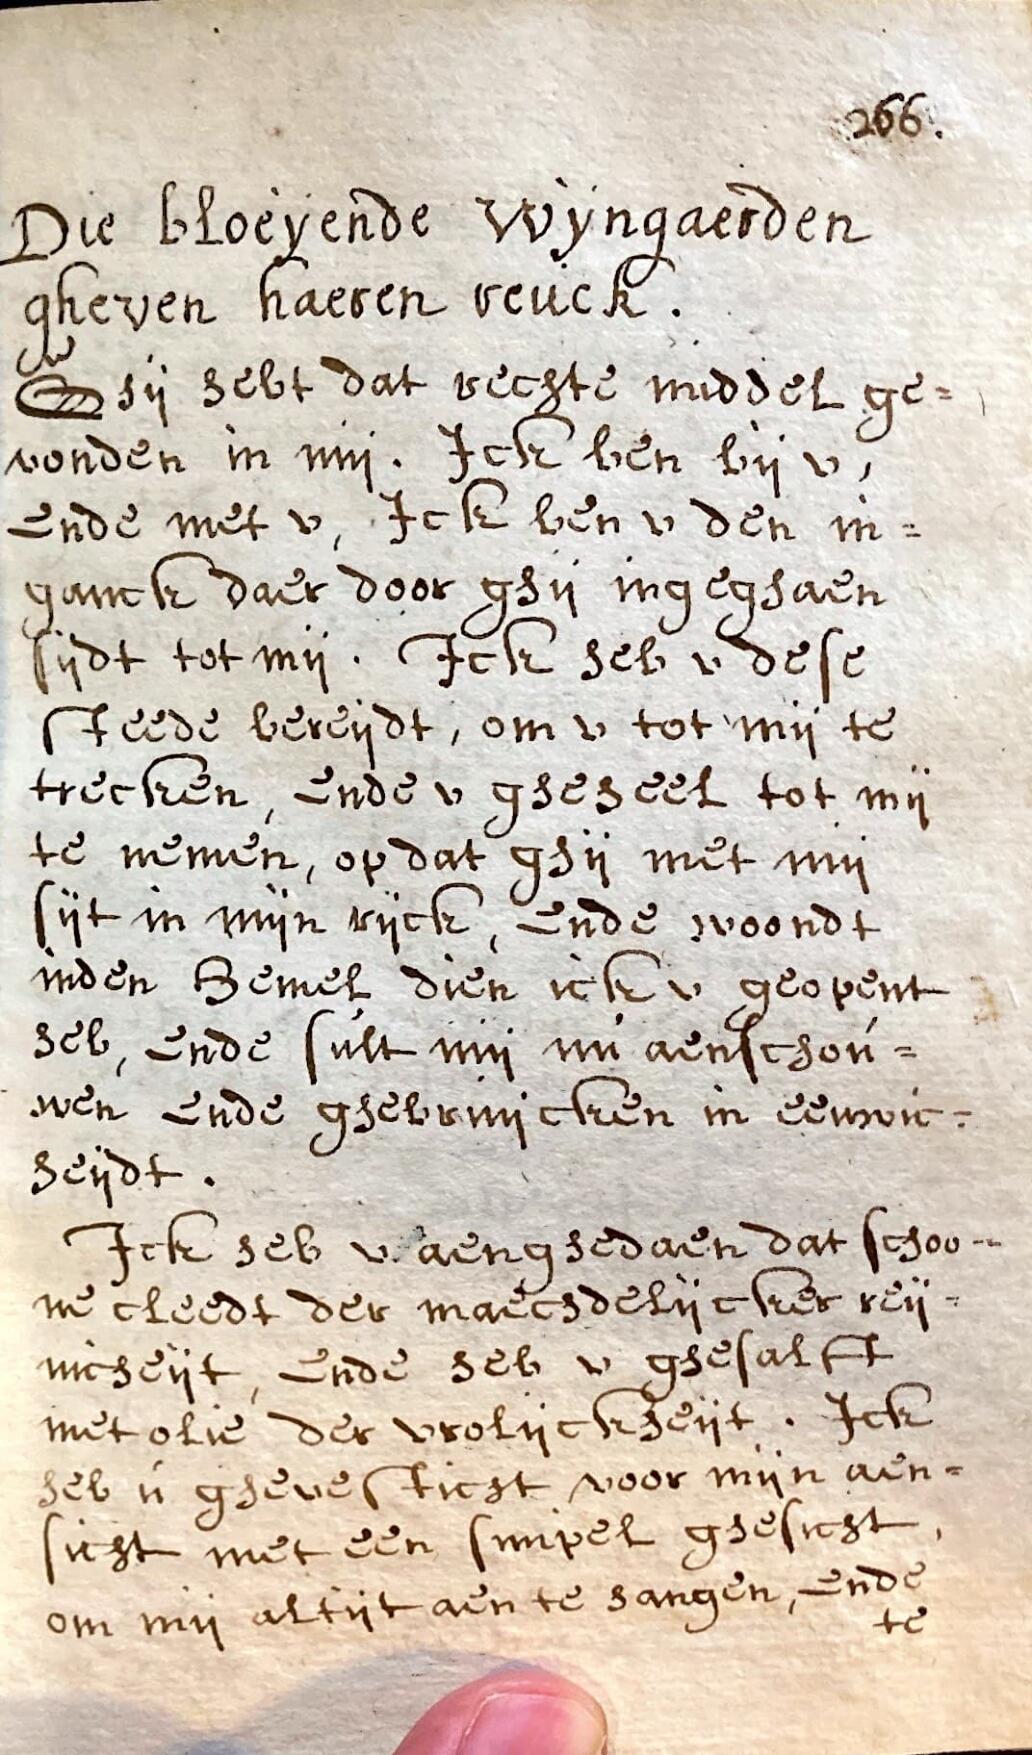 266.
Die bloeyende Wyngaerden
gheven haeren reuck.
Ghij hebt dat rechte middel ge=
vonden in mij. Ick ben bij v,
ende met v, Ick ben v den in=
ganck daer door ghij ingeghaen
sijdt tot mij. Ick heb v dese
steede bereijdt, om v tot mij te
trecken, ende v gheheel tot mij
te nemen, op dat ghij met mij
sijt in mijn rijck, ende woondt
inden Hemel dien ick v geopent
heb, ende súlt mij nú aenschoú=
wen ende ghebruijcken in eeuwic=
heijdt.
Ick heb v aenghedaen dat schoo=
ne cleedt der maechdelijcker reij=
nicheijt, ende heb v ghesalft
met olie der vrolijckheijt. Ick
heb ú ghevesticht voor mijn aen=
sicht met een simpel ghesicht,
om mij altijt aen te hangen, ende
te